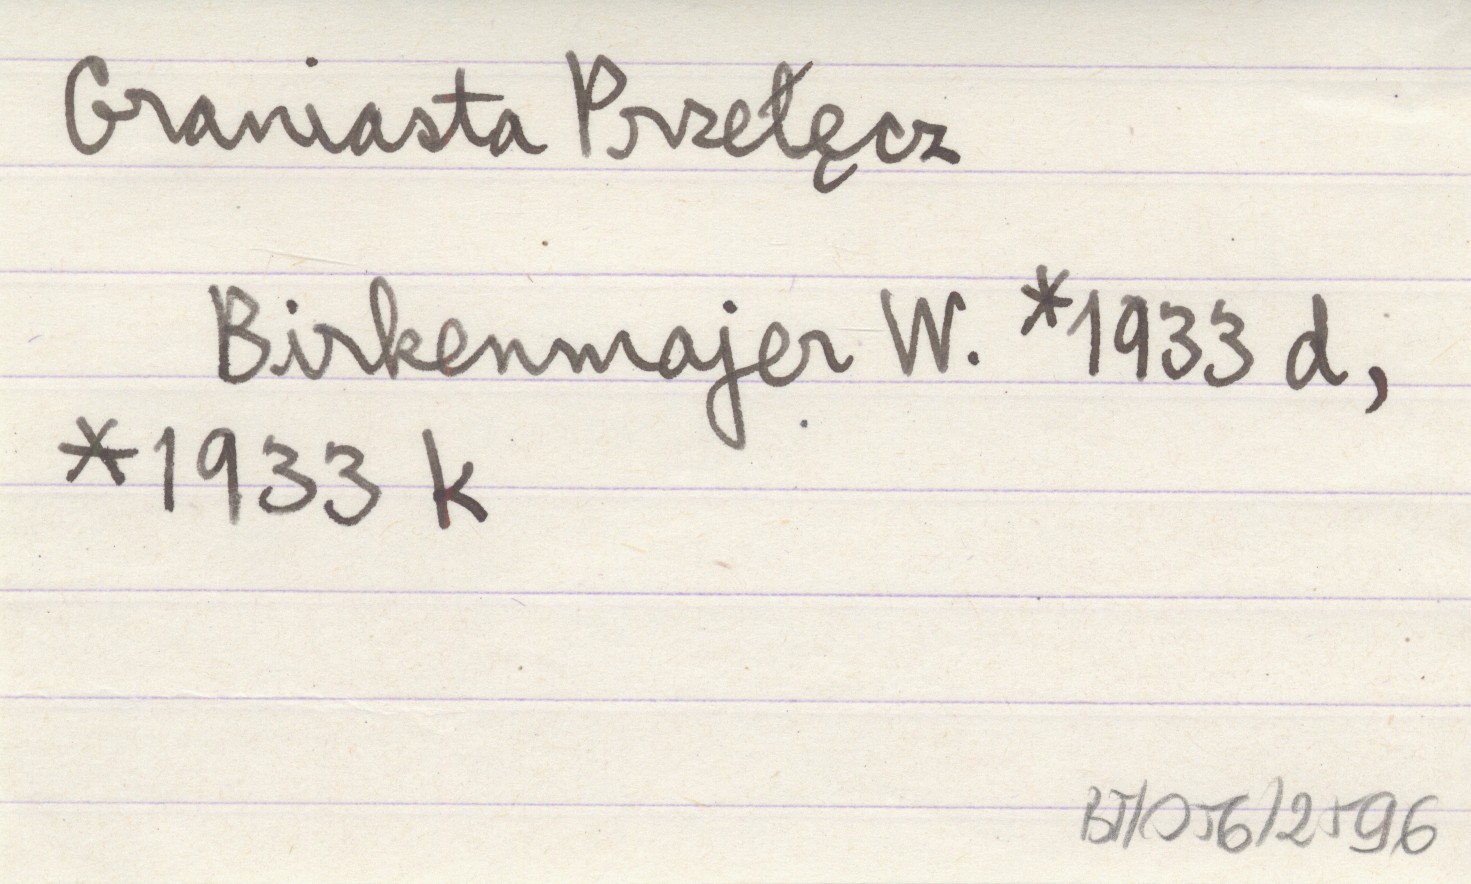 Graniasta Przełęcz
Birkenmajer W. *1933 d,
*1933 k
BT/056/2596